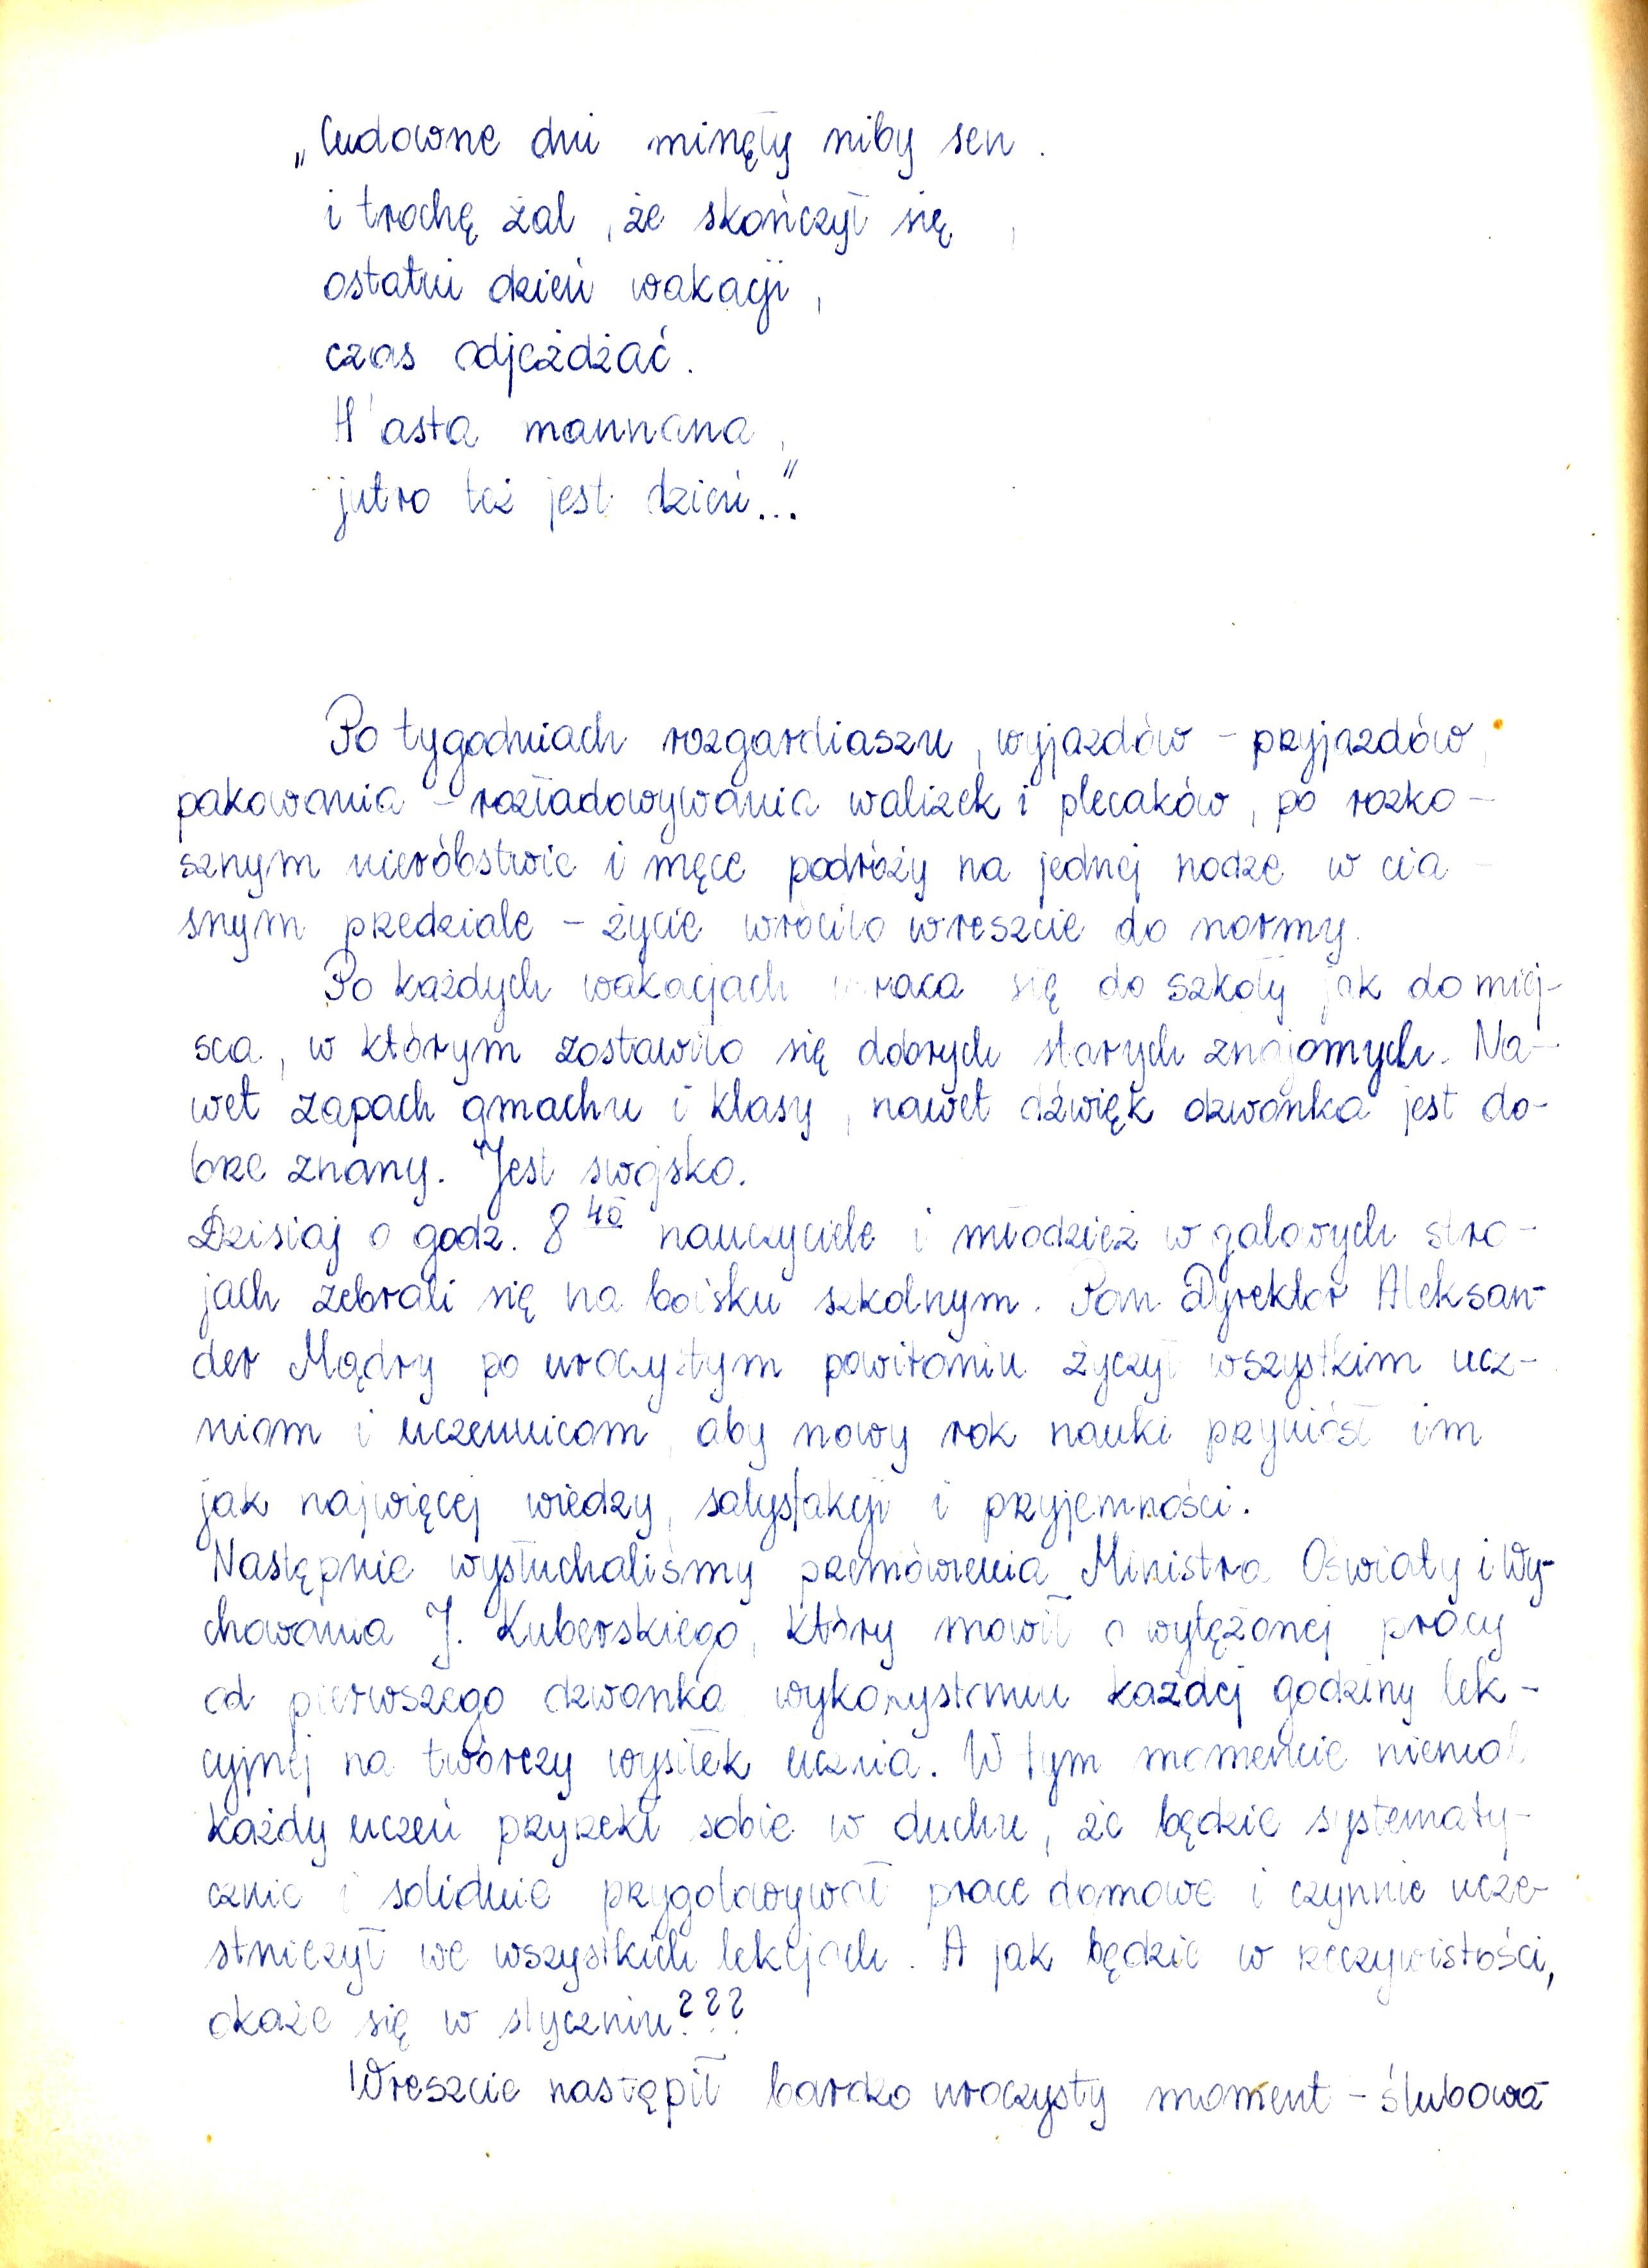 „Cudowne dni minęły niby sen.
i trochę żal, że skończył się
ostatni dzień wakacji,
czas odjeżdżać.
H'asta mannana,
jutro też jest dzień..."
Po tygodniach rozgardiaszu, wyjazdów - przyjazdów,
pakowania - rozładowywania walizek i plecaków, po rozko-
sznym nieróbstwie i męce podróży na jednej nodze w cia-
snym przedziale - życie wróciło wreszcie do normy.
Po każdych wakacjach wraca się do szkoły jak do miej-
sca, w którym zostawiło się dobrych starych znajomych. Na-
wet zapach gmachu i klasy, nawet dźwięk dzwonka jest do-
brze znany. Jest swojsko.
Dzisiaj o godz. 8 40 nauczyciele i młodzież w galowych stro-
jach zebrali się na boisku szkolnym. Pan Dyrektor Aleksan-
der Mądry po uroczystym powitaniu życzył wszystkim ucz-
niom i uczennicom, aby nowy rok nauki przyniósł im
jak najwięcej wiedzy, satysfakcji i przyjemności.
Następnie wysłuchaliśmy przemówienia Ministra Oświaty i Wy-
chowania J. Kuberskiego, który mówił o wytężonej pracy
od pierwszego dzwonka, wykorzystaniu każdej godziny lek-
cyjnej na twórczy wysiłek ucznia. W tym momencie niemal
każdy uczeń przyrzekł sobie w duchu, że będzie systematy-
cznie i solidnie przygotowywał prace domowe i czynnie ucze-
stniczył we wszystkich lekcjach. A jak będzie w rzeczywistości,
okaże się w styczniu???
Wreszcie nastąpił bardzo uroczysty moment - ślubowa-